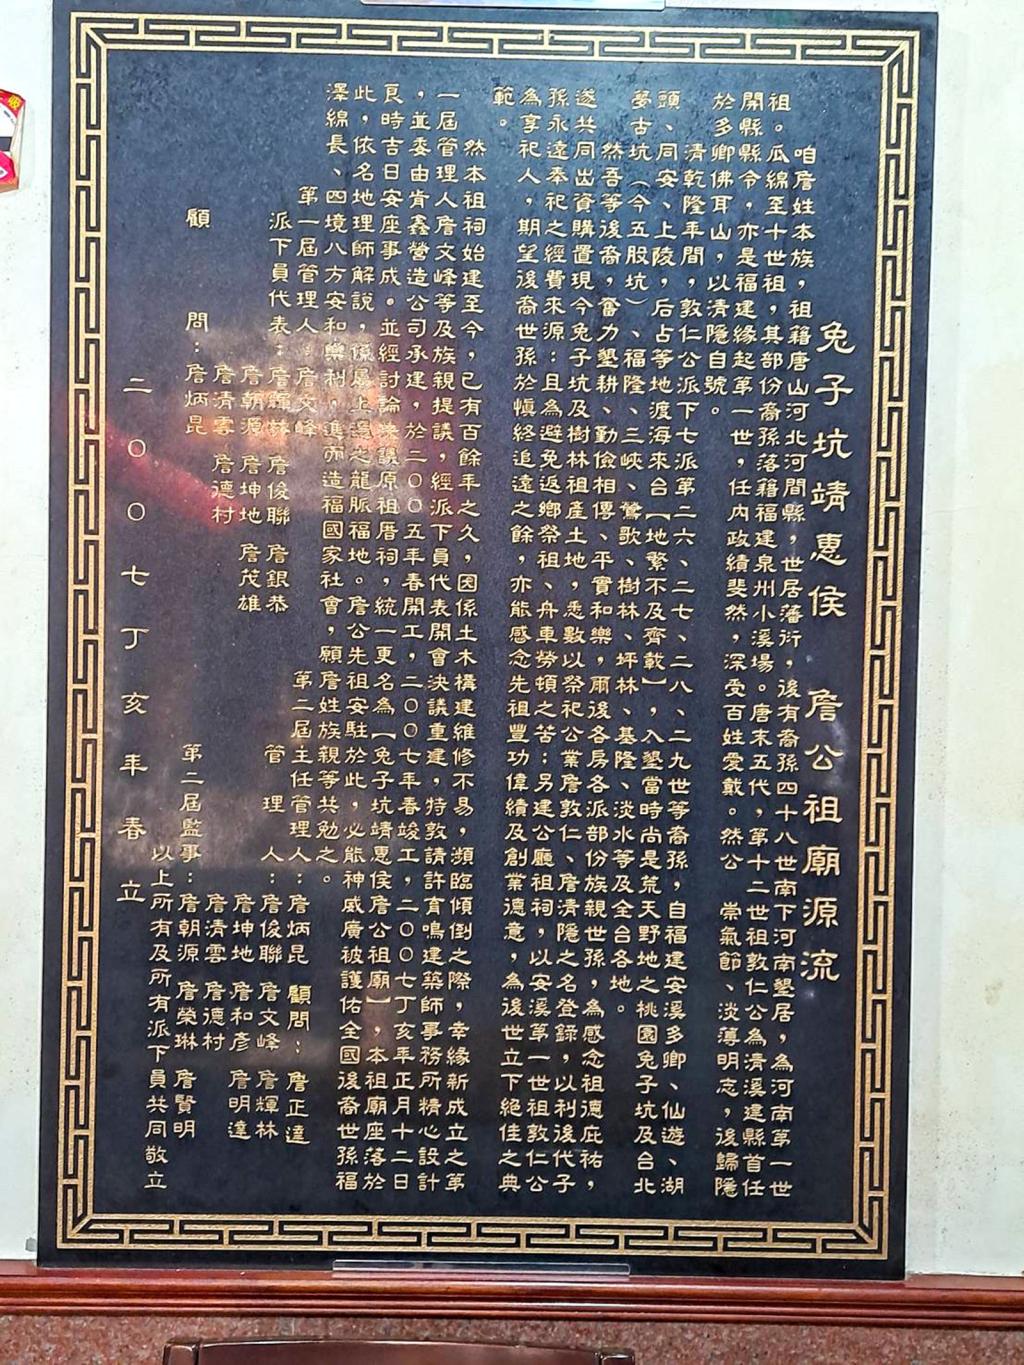 兔子坑靖惠侯　詹公祖廟源流
咱詹姓本族，祖籍唐山河北河間縣，世居藩衍，後有裔孫四十八世南下河南墾居，為河南第一世
祖。瓜綿至十世祖，其部份裔孫落籍福建泉州小溪場。唐末五代，第十二世祖敦仁公為清溪建縣首任
開縣縣令，亦是福建緣起第一世，任內政績斐然，深受百姓愛戴。然公　崇氣節、淡薄明志，後歸隱
於多卿佛耳山，以清隱自號。
清乾隆年間，敦仁公派下七派第二六、二七、二八、二九世等裔孫，自福建安溪多卿、仙遊、湖
頭、同安、上陵，后占等地渡海來台【地繁不及齊載】，入墾當時尚是荒天野地之桃園兔子坑及台北
蓼古坑（今五股坑）、福隆、三峽、鶯歌、樹林、坪林、基隆、淡水等及全台各地。
然吾等後裔，奮力墾耕、勤儉相傳、平實和樂，爾後各房各派部份族親世孫，為感念祖德庇祐，
遂共同出資購置現今兔子坑及樹林祖產土地，悉數以祭祀公業詹敦仁、詹清隱之名登錄，以利後代子
孫永遠奉祀之經費來源：且為避免返鄉祭祖、舟車勞頓之苦：另建公廳祖祠，以安溪第一世祖敦仁公
為享祀人，期望後裔世孫於慎終追遠之餘，亦能感念先祖豐功偉績及創業德意，為後世立下絕佳之典
範。
然本祖祠始建至今，已有百餘年之久，因係土木構建維修不易，瀕臨傾倒之際，幸緣新成立之第
一屆管理人詹文峰等及族親提議，經派下員代表開會決議重建，特敦請許育鳴建築師事務所精心設計
，並委由肯鑫營造公司承建，於二００五年春開工，二００七年春竣工，二００七丁亥年正月十二日
良時吉日安座事成。並經討論決議原祖厝祠，統一更名為【兔子坑靖惠侯詹公祖廟】，本祖廟座落於
此，依名地理師解說，係屬上選之龍脈福地。詹公先祖安駐於此，必能神威廣被護佑全國後裔世孫福
澤綿長、四境八方安和樂利，進而造福國家社會，願詹姓族親等共勉之。
第一屆管理人：詹文峰　第二屆主任管理人：詹炳昆　顧問：詹正達
派下員代表：詹輝林　詹俊聯　詹銀恭　管理人：詹俊聯　詹文峰　詹輝林
詹朝源　詹坤地　詹茂雄　詹坤地　詹和彥　詹明達
詹清雲　詹德村　詹清雲　詹德村
顧問：詹炳昆　第二屆監事：詹朝源　詹榮琳　詹賢明
以上所有及所有派下員共同敬立
二００七丁亥年春立